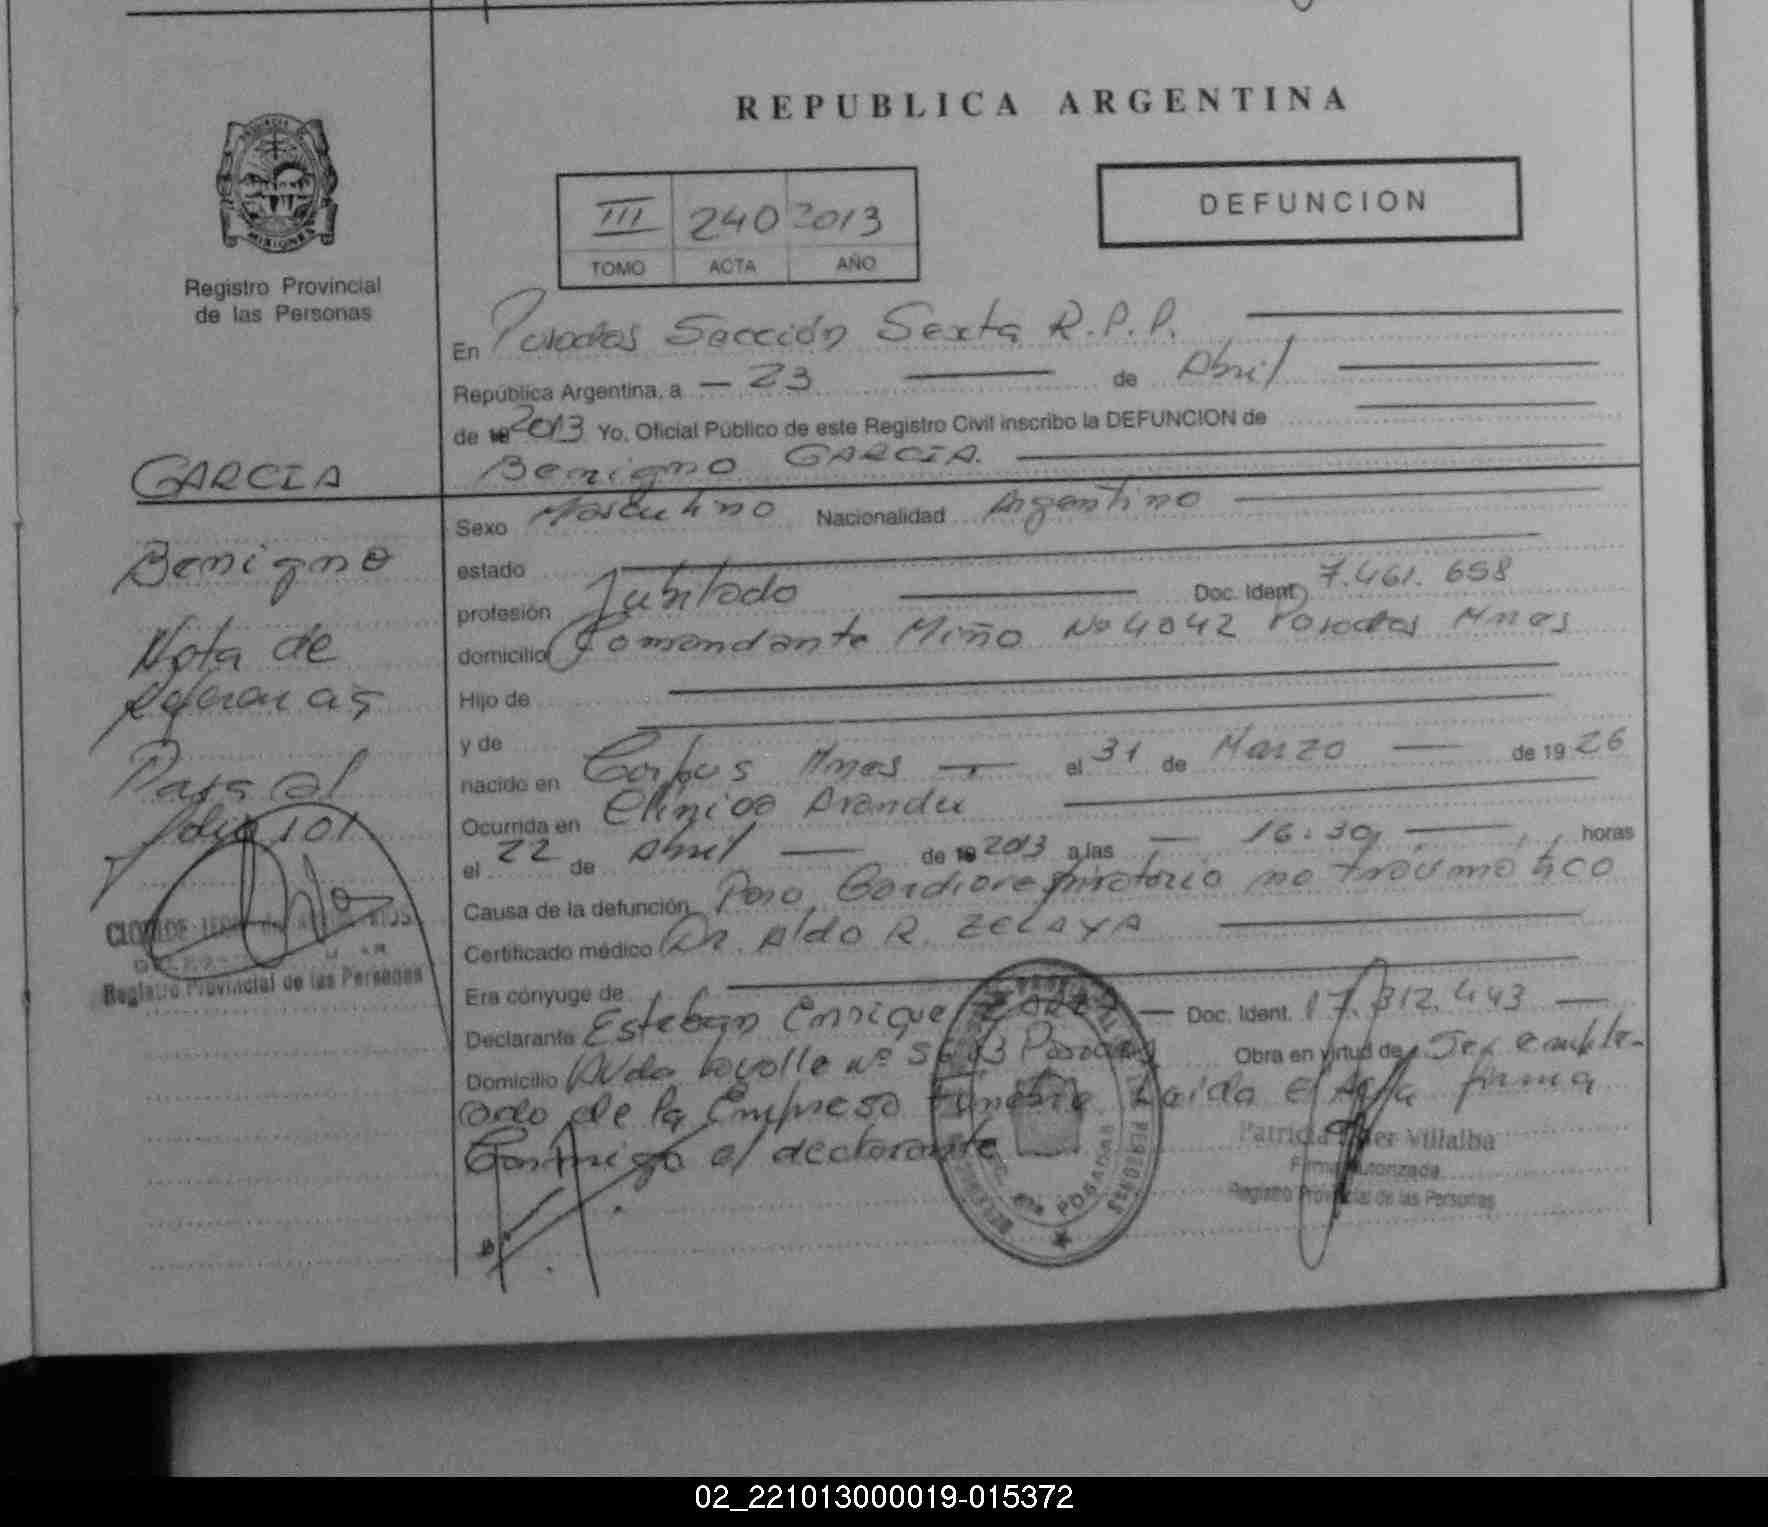 REPUBLICA ARGENTINA
PROVINCIA DE
MISIONES
Registro Provincial
de las Personas
III 240 2013
TOMO ACTA AÑO
DEFUNCION
En Posadas Sección Sexta R.P.P.
República Argentina, a - 23 de Abril
de 2013 Yo, Oficial Público de este Registro Civil inscribo la DEFUNCION de
Benigno GARCIA.
Sexo Masculino Nacionalidad Argentino
estado
profesión Jubilado Doc. Ident. 7.461.658
domicilio Comandante Miño No 4042 Posadas Mnes
Hijo de
y de
nacido en Corpus Mnes el 31 de Marzo de 1926
Ocurrida en Clinica Arandu
el 22 de Abril de 2013 a las 16:30 horas
Causa de la defunción Paro Cardiorespiratorio no traumatico
Certificado médico Dr. Aldo R. ZELAYA
Era cónyuge de
Declarante Esteban Enrique Doc. Ident. 17.312.443
Domicilio Avda Lavalle nº Posadas Obra en virtud de Ser emplea-
ado de la Empresa Funebre Leida el Acta firma
Conmigo el declarante
GARCIA
Benigno
Nota de
Referencias
Pasa al
folio 101
Registro Provincial de las Personas
POSADAS
Patricia Villalba
Firma Autorizada
Registro Provincial de las Personas
02_221013000019-015372